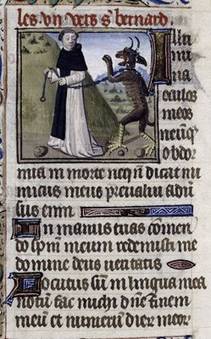 les vers s bernard.
Illu
mi
na
oculos
meos
neunq
obdor
miā in morte neqn dicat ini
micus meus preualui aduer
sus eum
In manus tuas comen
do spm meum redemisti me
domine deus veritatis
Locutus sum in lingua mea
notum fac michi dne finem
meū et numerū dierū meor